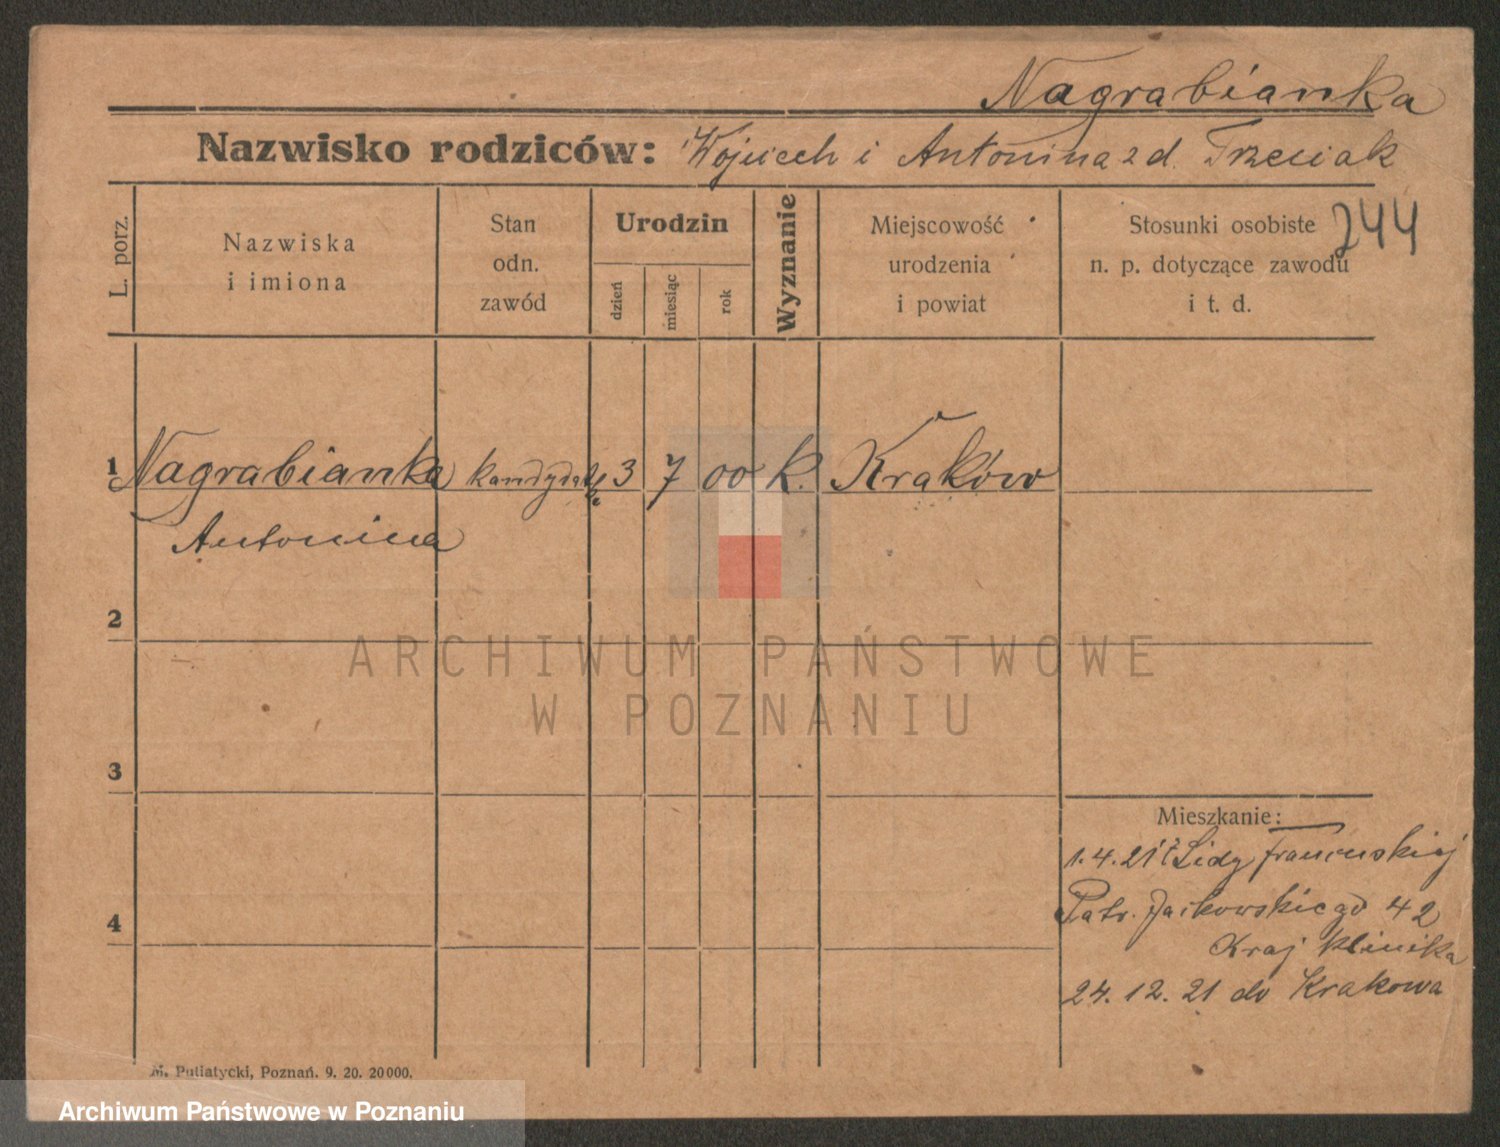 Nagrabianka
Nazwisko rodziców: Wojciech i Antonina z d. Trzeciak
244
L. porz.
Nazwiska
i imiona
Stan
odn.
zawód
Urodzin
dzień
miesiąc
rok
Wyznanie
Miejscowość
urodzenia
i powiat
Stosunki osobiste
n. p. dotyczące zawodu
i t. d.
1 Nagrabianka kandydatka 3 7 00 k. Kraków
Antonina
2
3
4
Mieszkanie:
1.4.21
Patr. Jackowskiego 42
Kraj klinika
24.12.21 do Krakowa
M. Putiatycki, Poznań. 9. 20. 20 000.
ARCHIWUM PAŃSTWOWE
W POZNANIU
Archiwum Państwowe w Poznaniu